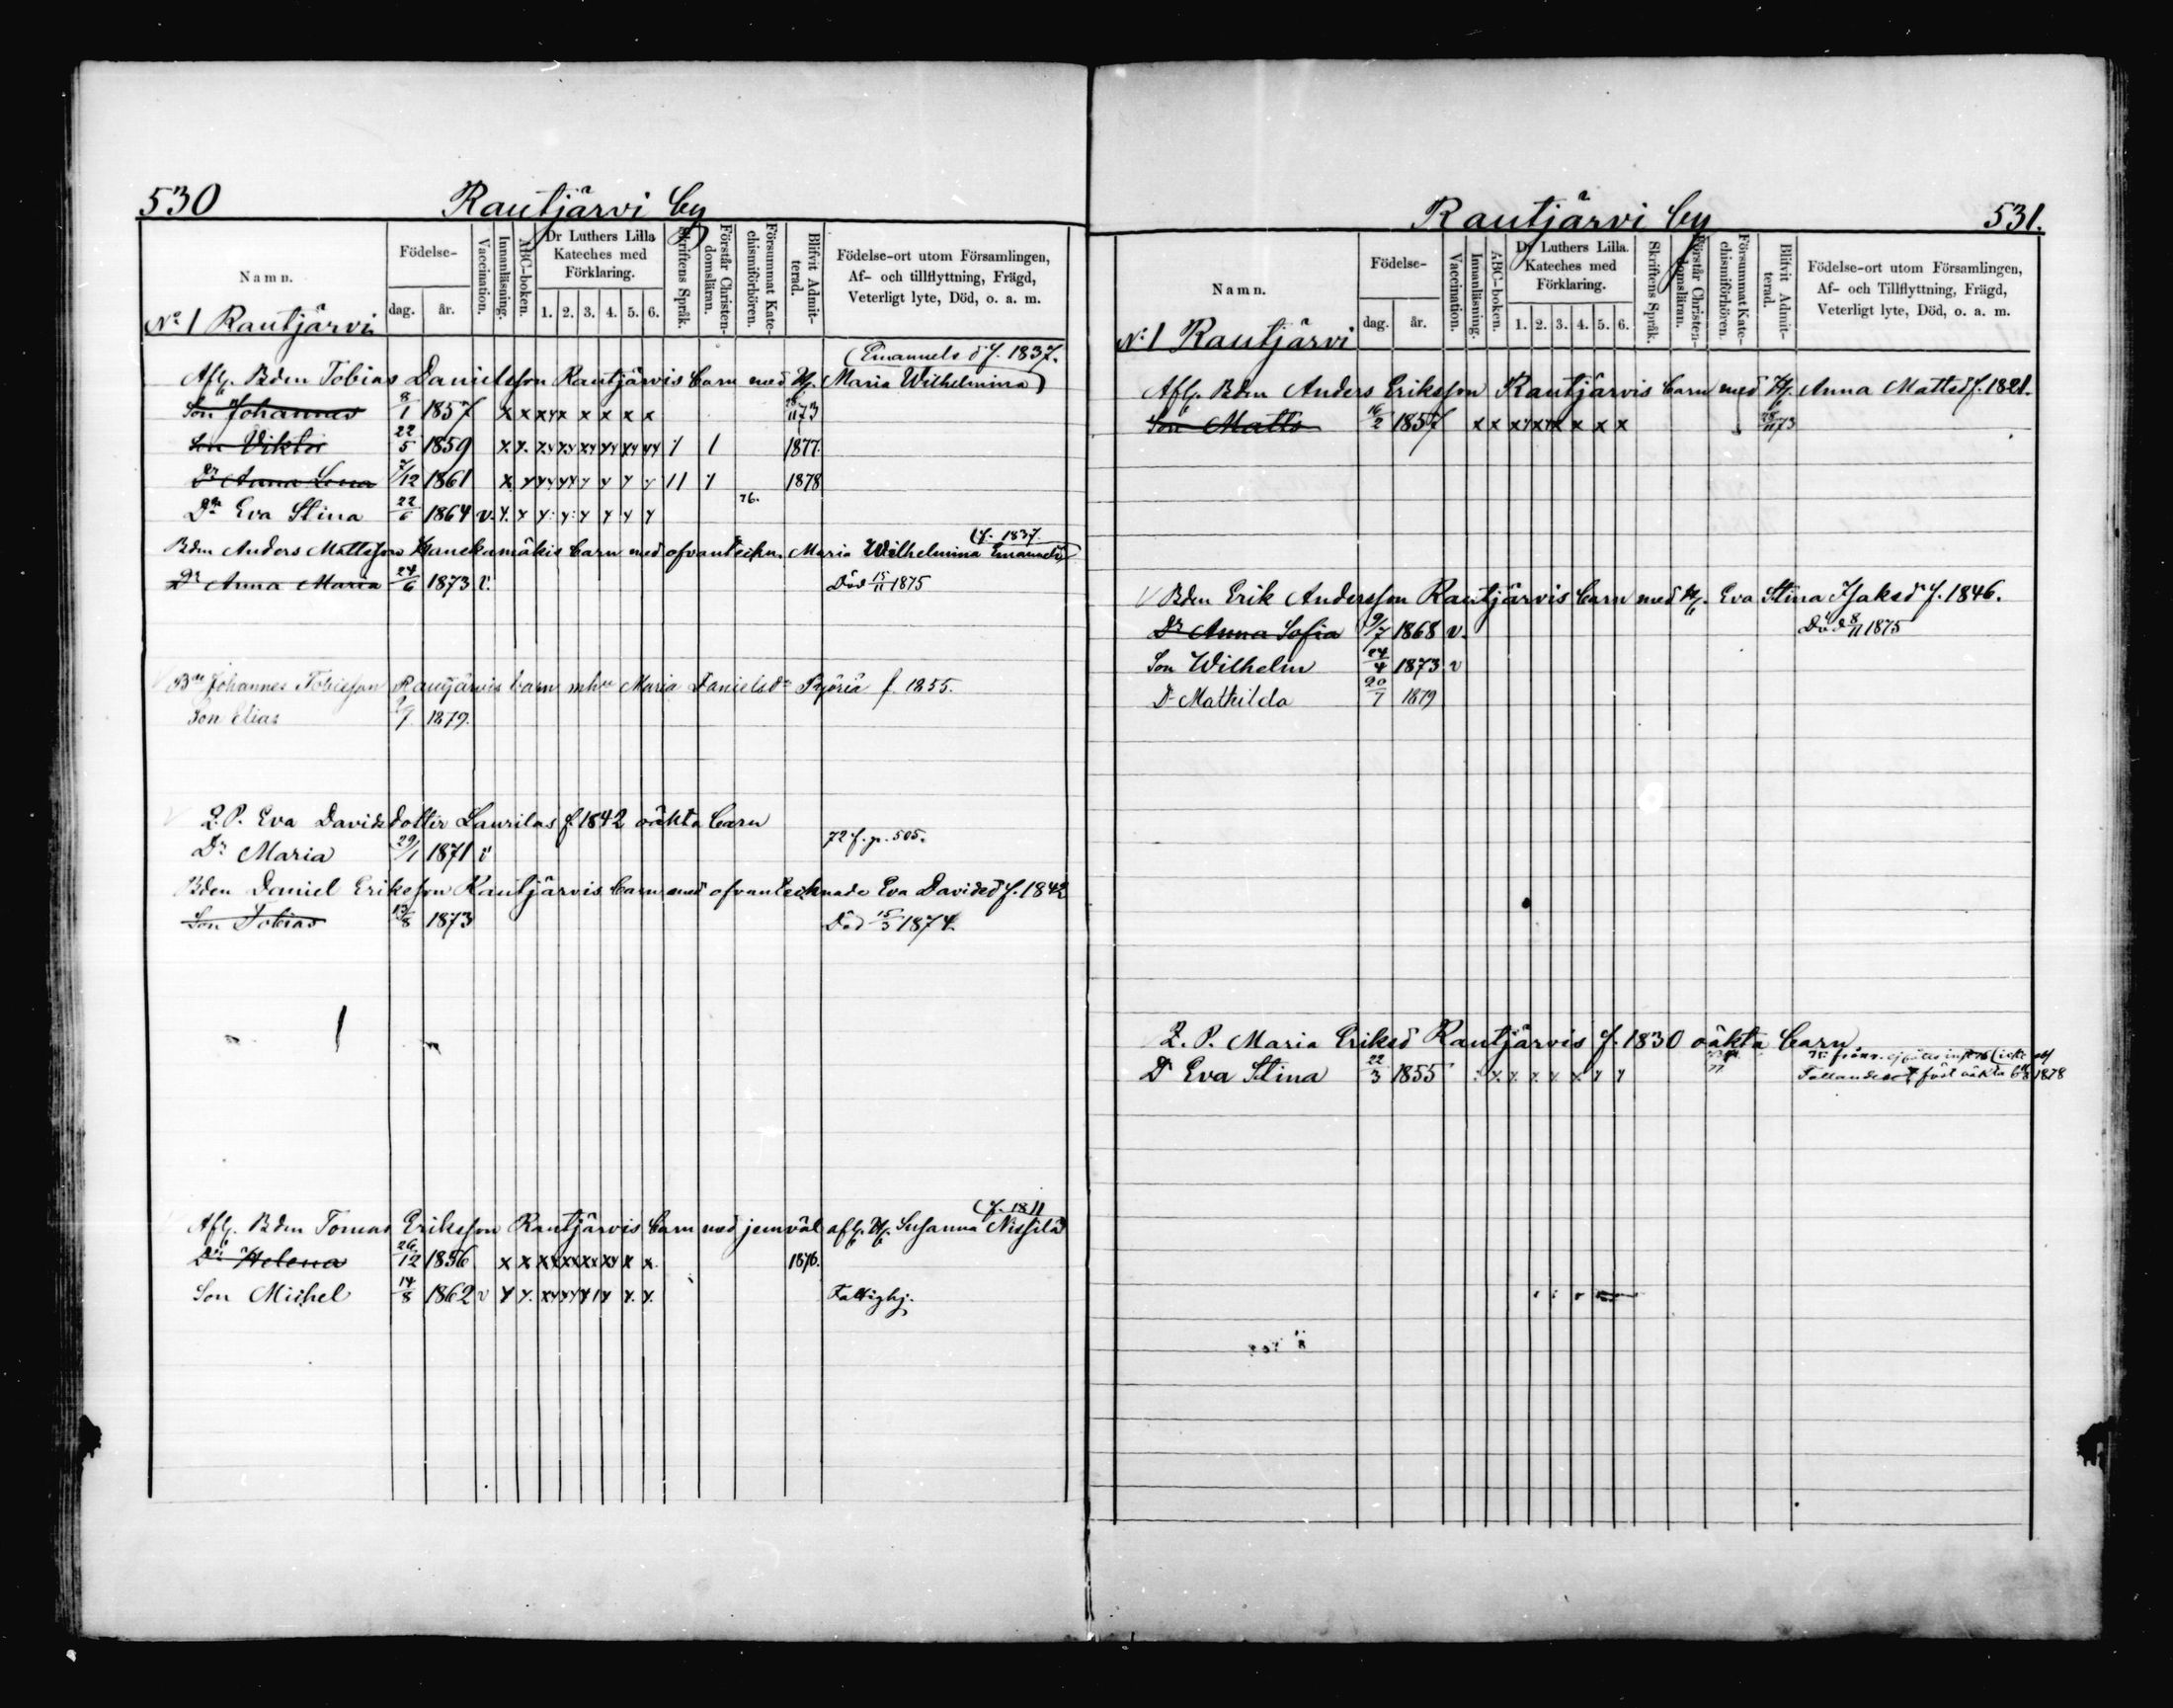 530 Rautjärvi by
Namn.
Födelse-
dag. år.
Vaccination.
Innanläsning.
ABC-boken.
Dr Luthers Lilla Kateches med Förklaring.
1. 2. 3. 4. 5. 6.
Skriftens Språk.
Förstår Christendomsläran.
Försummat Katechismiförhören.
Blifvit Admitterad.
Födelse-ort utom Församlingen,
Af- och tillflyttning, Frägd,
Veterligt lyte, Död, o. a. m.
No 1 Rautjärvi
(Emanuelsd f. 1837.
Afl. Bden Tobias Danielsson Rautjärvis barn med H. Maria Wilhelmina)
Son Johannes 8/1 1857 x x xx x x x x x 73
Son Viktor 22/5 1859 1877.
Dr Anna Lena 7/12 1861 1878
Dr Eva Stina 22/6 1864 v. 76.
(f. 1837.
Bden Anders Mattsson barn med ofvanteckn. Maria Wilhelmina Emanuelsd
Dr Anna Maria 24/6 1873 v. Död 15/11 1875
Johannes Tobiasson Rautjärvis barn mhu Maria Danielsdr f 1855.
Son Elias 1879.
Q. P. Eva Davidsdotter Laurilas f. 1842 oäkta barn
Dr Maria 29/1 1871 v 72 f. p. 505.
Bden Daniel Eriksson Rautjärvis barn med ofvantecknade Eva Davidsd f. 1842
Son Tobias 13/8 1873 Död 15/3 1874.
(f. 1811
Afl. Bden Tomas Eriksson Rautjärvis barn med jemväl afl. H. Susanna Nissilä
Dr Helena 26/12 1856 1876.
Son Michel 14/8 1862 v Fattighj.
Rautjärvi by 531.
Namn.
Födelse-
dag. år.
Vaccination.
Innanläsning.
ABC-boken.
Dr Luthers Lilla. Kateches med Förklaring.
1. 2. 3. 4. 5. 6.
Skriftens Språk.
Förstår Christendomsläran.
Försummat Katechismiförhören.
Blifvit Admitterad.
Födelse-ort utom Församlingen,
Af- och Tillflyttning, Frägd,
Veterligt lyte, Död, o. a. m.
N:1 Rautjärvi
Afl. Bden Anders Eriksson Rautjärvis barn med H. Anna Mattsd f. 1821.
Son Matts 16/2 1857 73
Bden Erik Andersson Rautjärvis barn med H. Eva Stina Isaksd f. 1846.
Dr Anna Sofia 9/7 1868 v. Död 8/11 1875
Son Wilhelm 24/4 1873 v
Dr Mathilda 20/7 1879
Q. P. Maria Eriksd Rautjärvis f. 1830 oäkta barn
Dr Eva Stina 22/3 1855 77 födt oäkta 1878